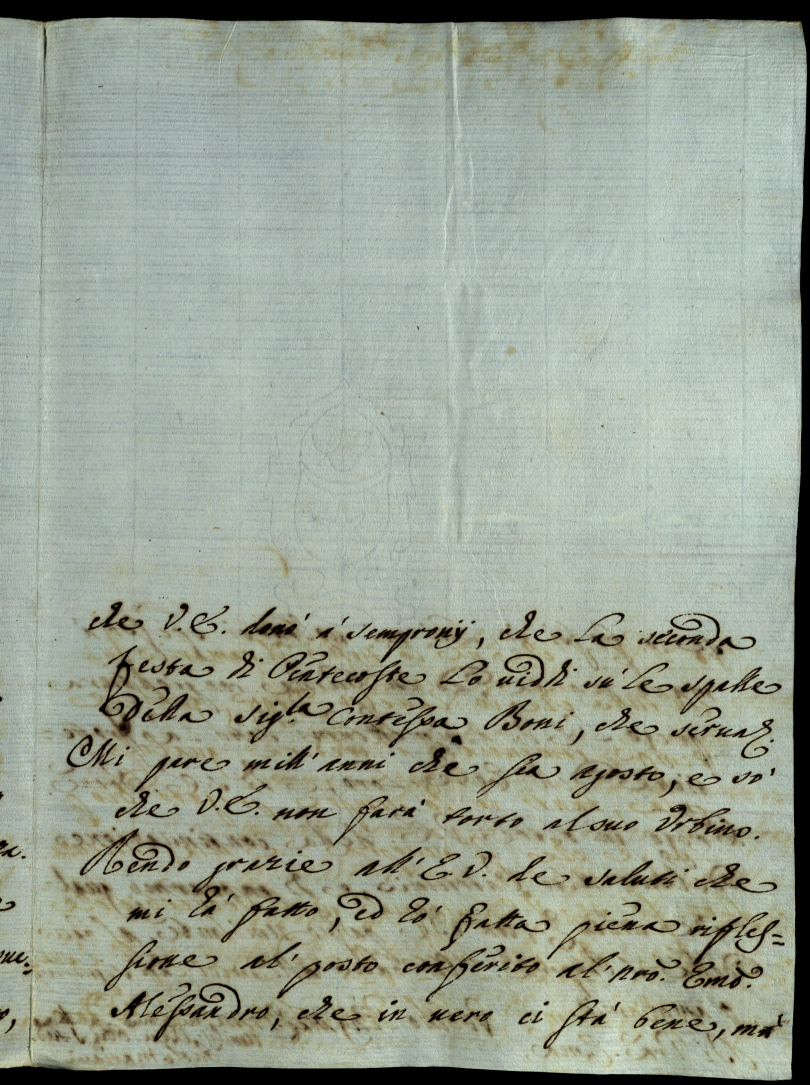 che V.E. donò à Sempronij, che La seconda
festa di Pentecoste Lo viddi sù le spalle
Della Sig.la Contessa Boni, che serva
Mi pare mill'anni che sia agosto, e sò
che V.E. non farà torto al suo Urbino.
Rendo grazie all'E.V. de saluti che
mi hà fatto, ed hò fatta piena rifles=
sione al' posto conferito al' nro. Emo.
Alessandro, che in vero ci stà bene, mà